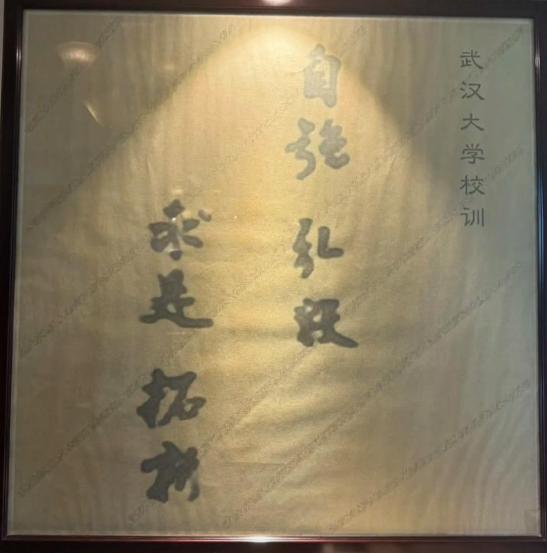 武汉大学校训
自强 弘毅
求是 拓新